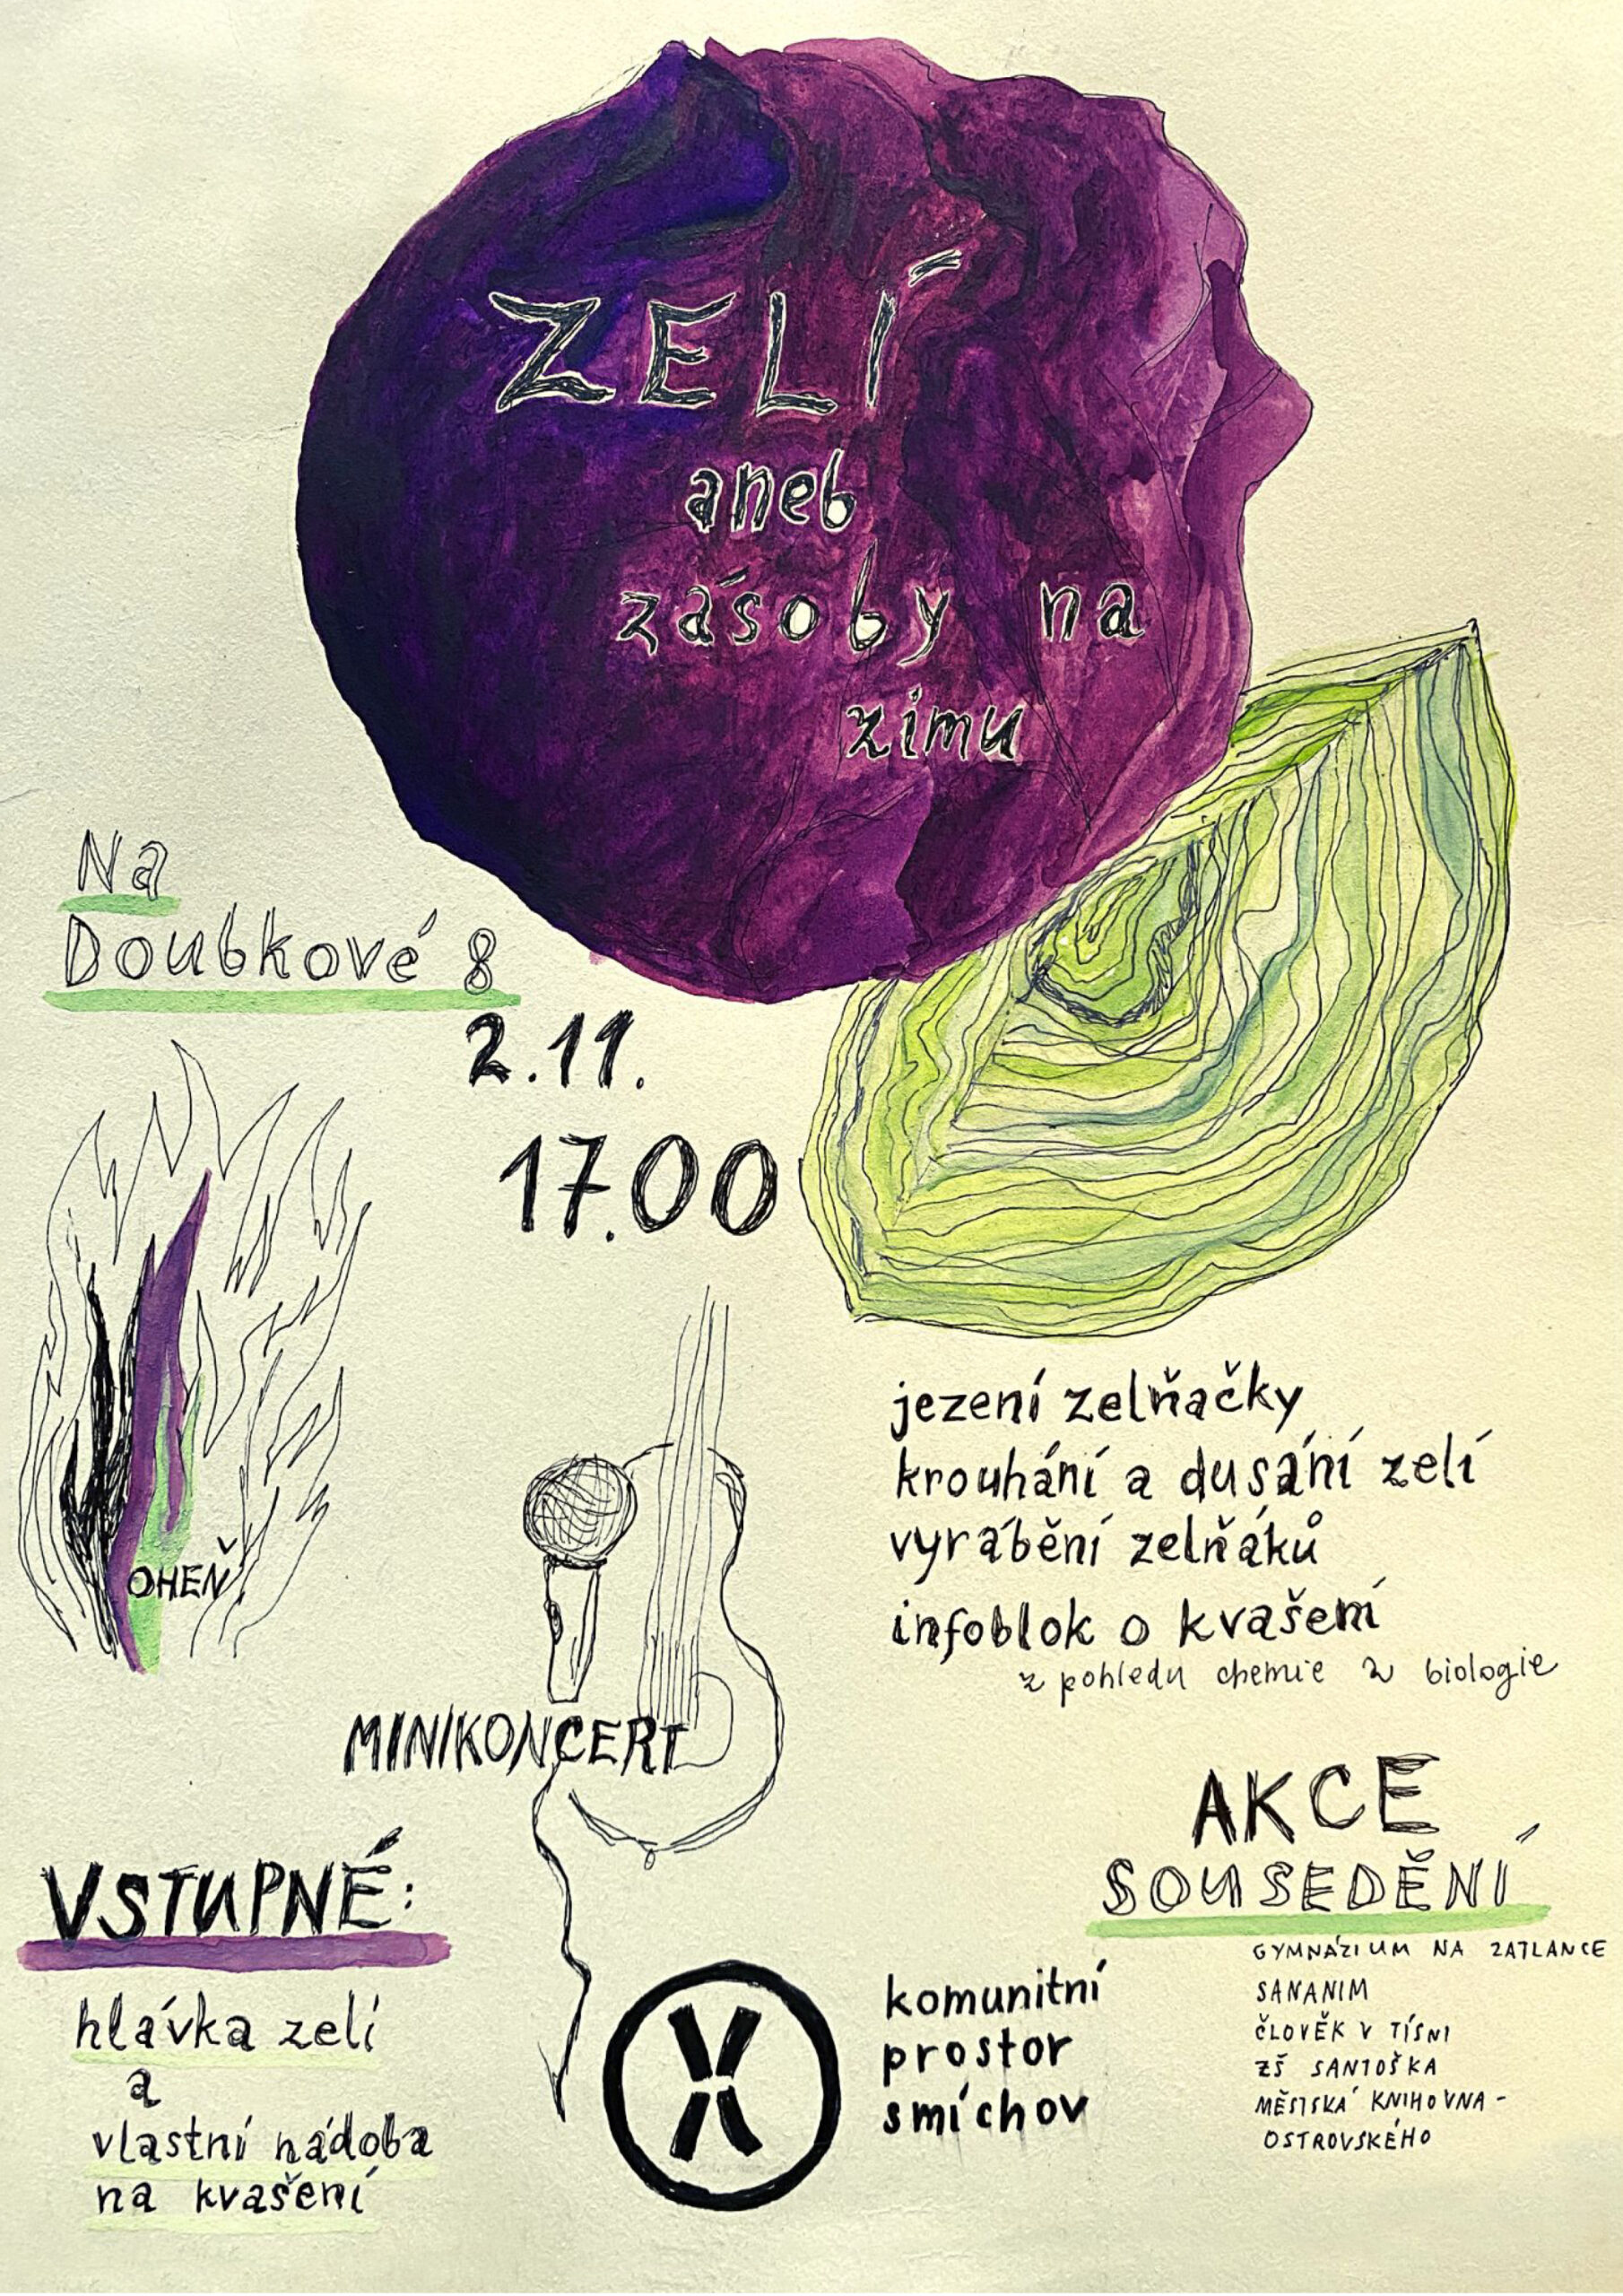 ZELÍ
aneb
zásoby na
zimu
Na
Doubkové 8
2.11.
17.00
OHEŇ
MINIKONCERT
jezení zelňačky
krouhání a dusání zelí
vyrábění zelňáků
infoblok o kvašení
z pohledu chemie a biologie
VSTUPNÉ:
hlávka zelí
a
vlastní nádoba
na kvašení
komunitní
prostor
smíchov
AKCE
SOUSEDĚNÍ
GYMNÁZIUM NA ZATLANCE
SANANIM
ČLOVĚK V TÍSNI
ZŠ SANTOŠKA
MĚSTSKÁ KNIHOVNA -
OSTROVSKÉHO